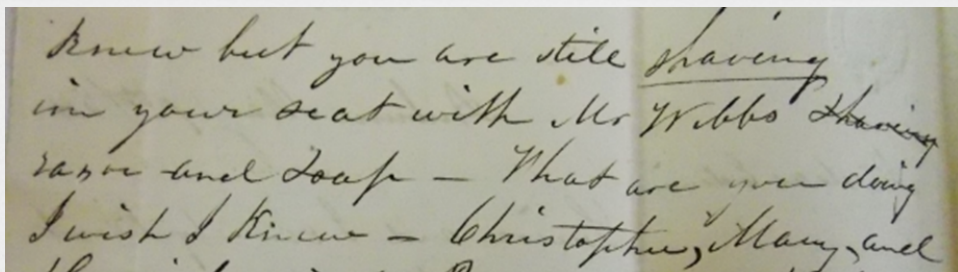 knew but you are still shaving
in your seat with Mr Webbs shaving
razor and soap — What are you doing
I wish I knew — Christopher, Mary, and